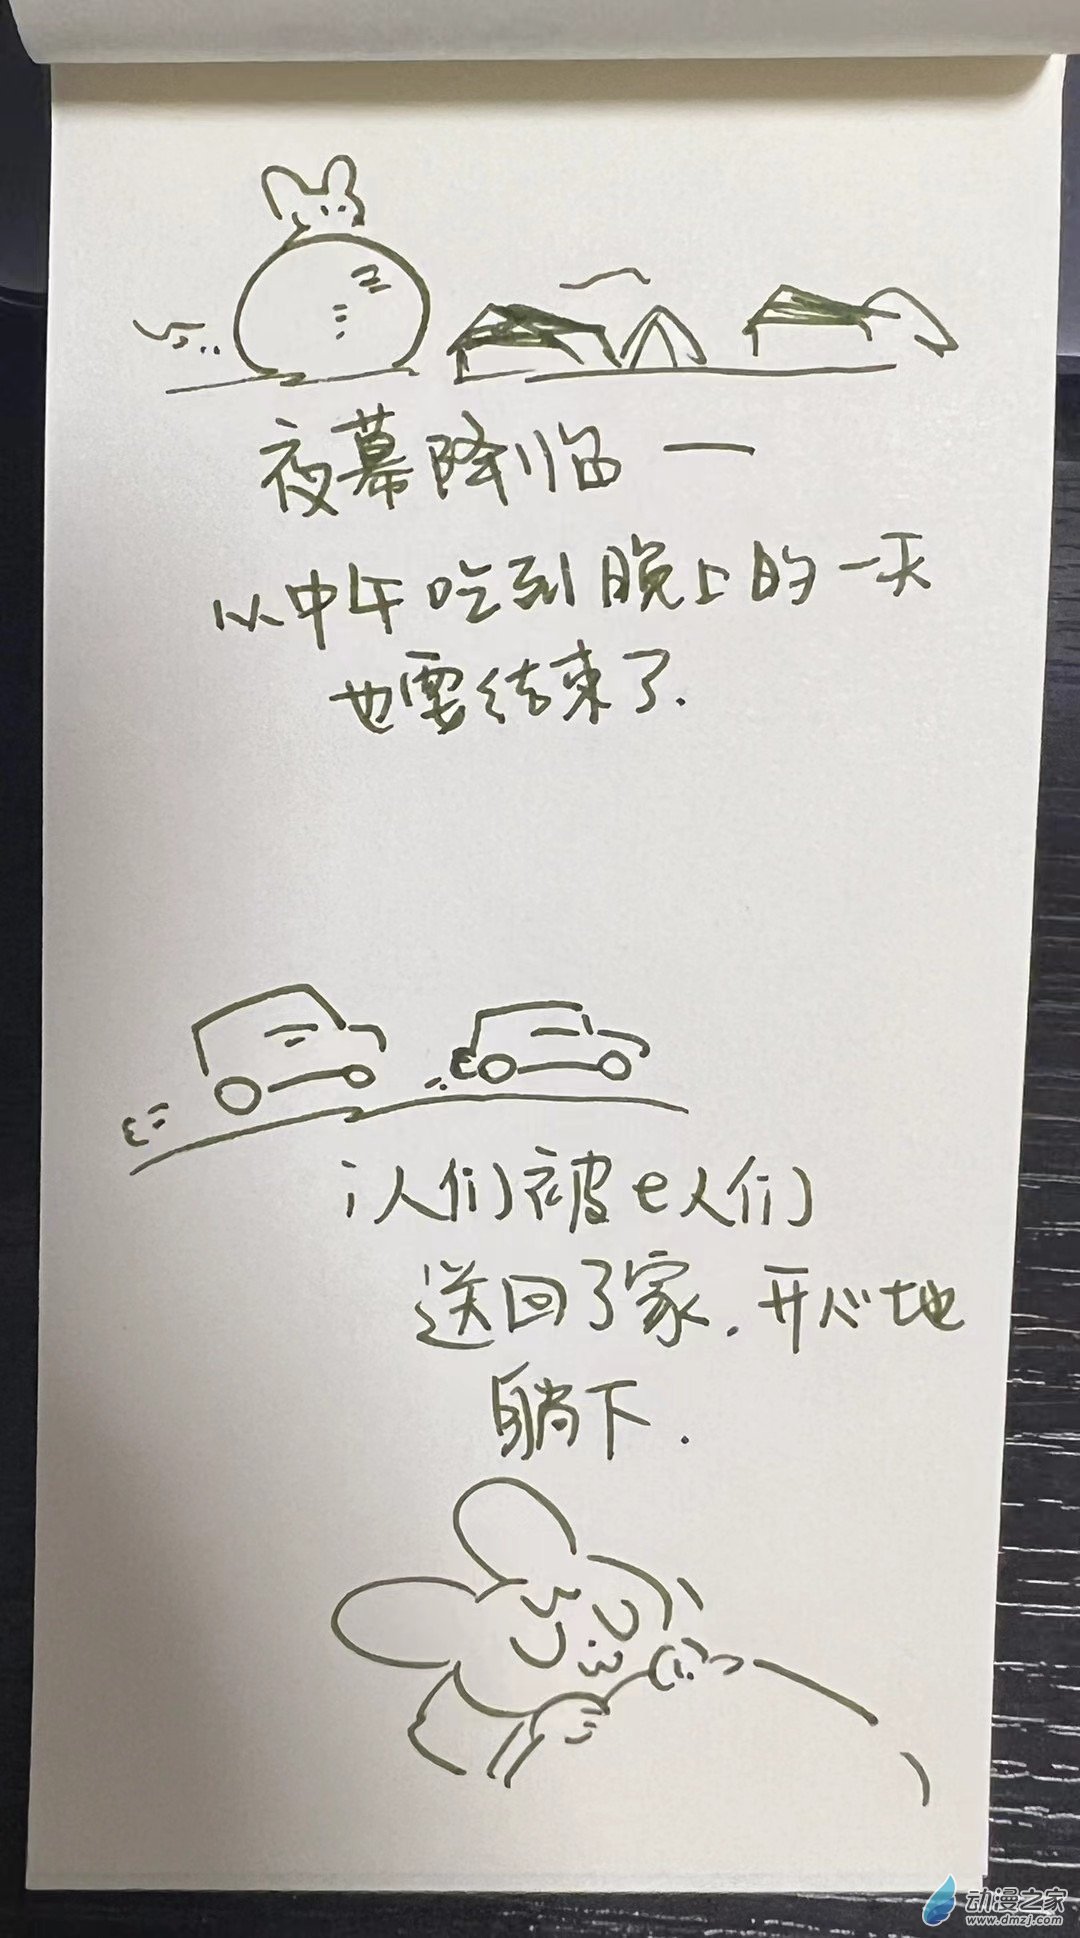 夜幕降临一
从中午吃到晚上的一天
也要结束了.
i人们被e人们
送回了家.开心地
躺下.
动漫之家
www.dmzj.com